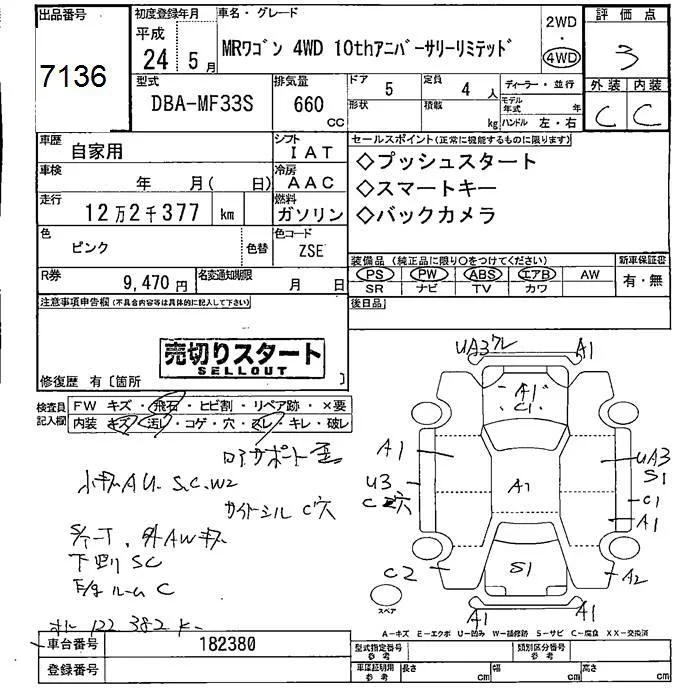 出品番号
7136
初度登録年月
平成
24 5月
車名・グレード
MRワゴン 4WD 10thアニバーサリーリミテッド
2WD
・
4WD
評価点
3
型式
DBA-MF33S
排気量
660
CC
ドア
5
定員
4人
形状
積載
kg
ディーラー・並行
モデル年式 年
ハンドル 左・右
外装 内装
C C
車歴
自家用
シフト
IAT
車検
年 月( 日)
冷房
AAC
走行
12万2千377 km
燃料
ガソリン
色
ピンク
色替
色コード
ZSE
R券
9,470円
名変通知期限
月 日
セールスポイント(正常に機能するものに限ります)
◇プッシュスタート
◇スマートキー
◇バックカメラ
装備品(純正品に限り○をつけてください)
新車保証書
PS PW ABS エアB AW
SR ナビ TV カワ
有・無
後日品
注意事項申告欄(不具合内容等は具体的に記入して下さい)
売切りスタート
SELLOUT
修復歴 有〔箇所 〕
検査員記入欄
FW キズ・飛石・ヒビ割・リペア跡・×要
内装 キズ・汚レ・コゲ・穴・スレ・キレ・破レ
小キズAU S.C.W2
サイドシル C穴
外AWキズ
下回りSC
ルームC
122382K
車台番号
182380
登録番号
UA3 ワレ
A1
A1
C1
A1
UA3
S1
U3
C
穴
A1
C1
A1
C2
S1
A2
A1
A1
スペア
A-キズ E-エクボ U-凹み W-補修跡 S-サビ C-腐食 XX-交換済
型式指定番号
参考
類別区分番号
参考
車庫証明用
参考
長さ cm
幅 cm
高さ cm